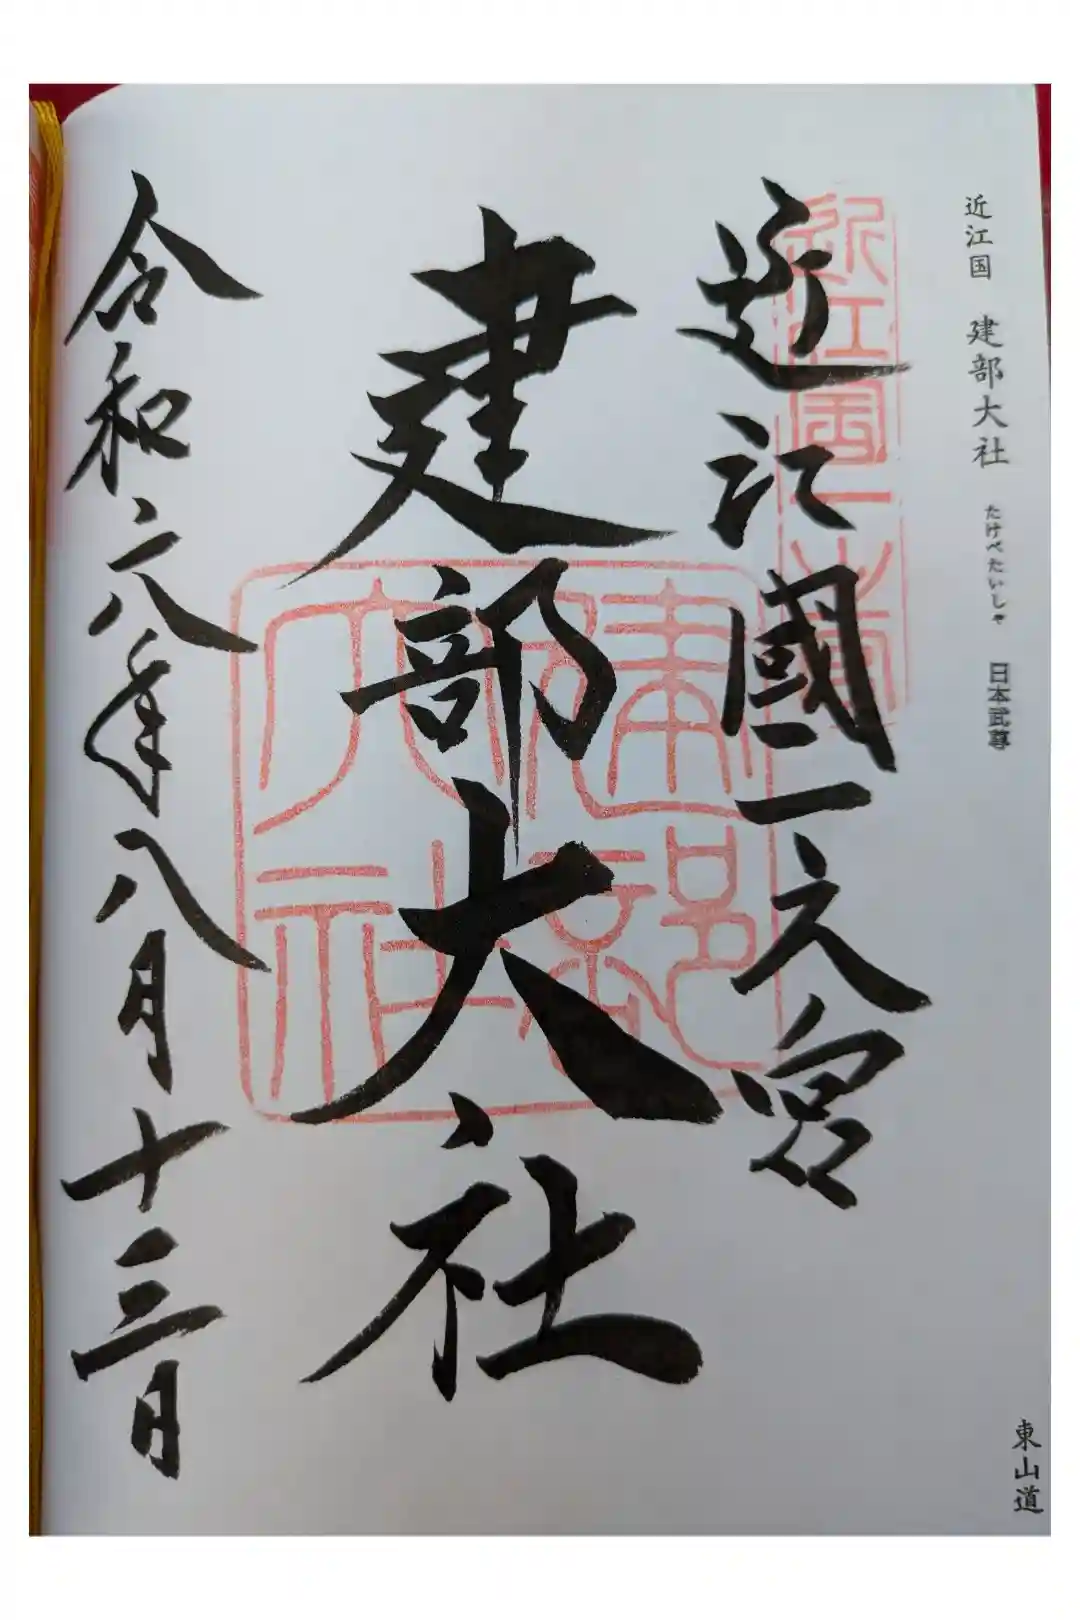 近江国 建部大社 たけべたいしゃ 日本武尊
東山道
近江國一之宮
近江国一之宮
建部大社
建部大社
令和六年八月十三日